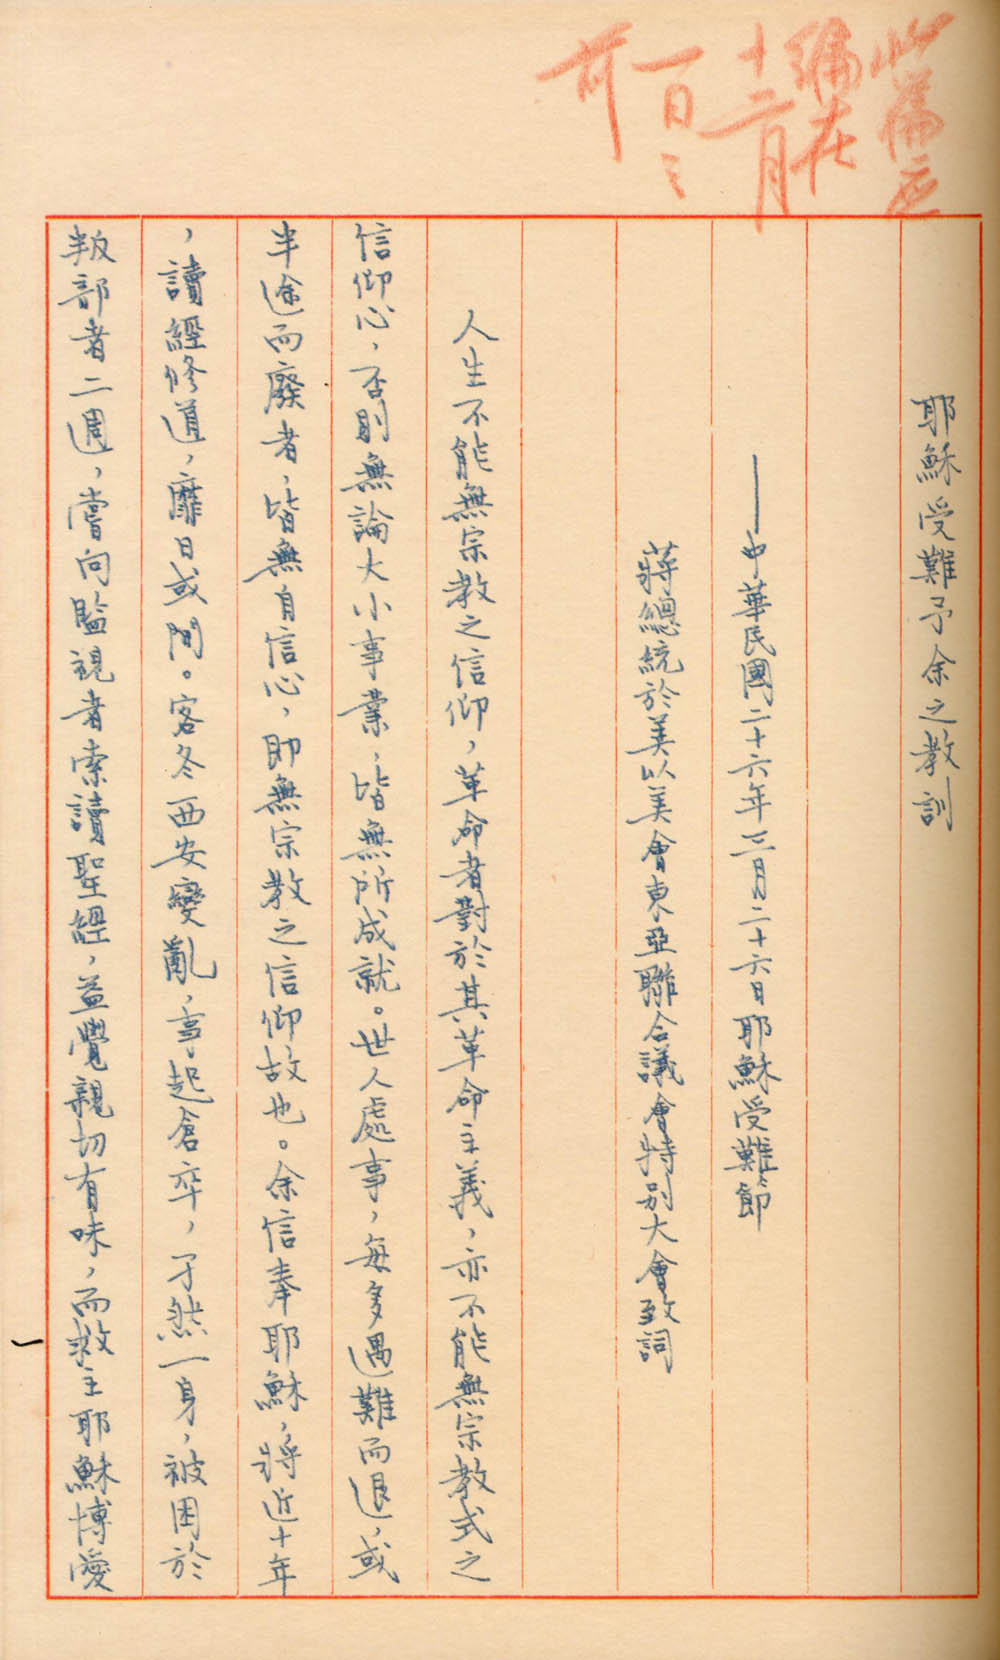 此篇應
編在
十二月
一日之
前
耶穌受難予余之教訓
——中華民國二十六年三月二十六日耶穌受難節
蔣總統於美以美會東亞聯合議會特別大會致詞
人生不能無宗教之信仰，革命者對於其革命主義，亦不能無宗教式之
信仰心，否則無論大小事業，皆無所成就。世人處事，每多遇難而退，或
半途而廢者，皆無自信心，即無宗教之信仰故也。余信奉耶穌，將近十年
，讀經修道，靡日或間。客冬西安變亂，事起倉卒，孑然一身，被困於
叛部者二週，嘗向監視者索讀聖經，益覺親切有味，而救主耶穌博愛